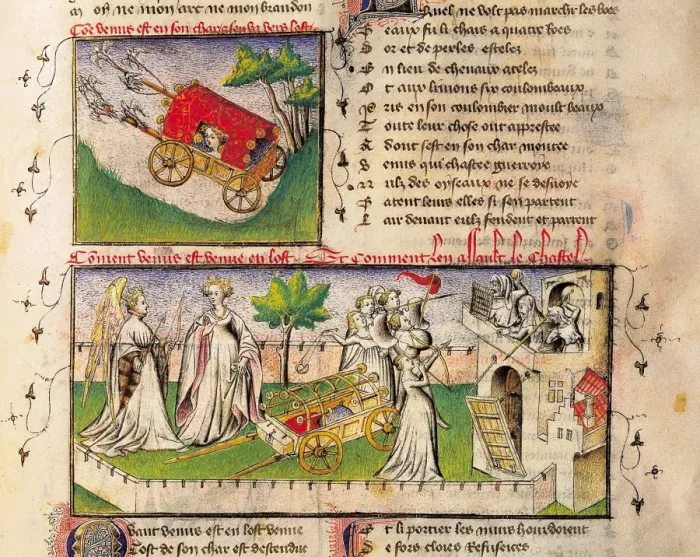 on ne mon arc ne mon brandon
Coe venus est en son char vers lost
Quel ne volt pas marchir les boes
Beaux fu li chars a quatre roes
Dor et de perles esteles
En lieu de chevaux ateles
Ot aux limons six coulombeaux
Pris en son coulombier moult beaux
Toute leur chose ont aprestee
Adont sest en son char montee
Venus qui chastee guerroye
Nulz des oyseaux ne se desroye
Batent leurs elles si sen partent
Lair devant eulz fendent et partent
Coment venus est venue en lost Et comment len assault le chastel
Quant venus est en lost venue
Tost de son char est destendue
Et li portier les murs hourdoient
Se fors